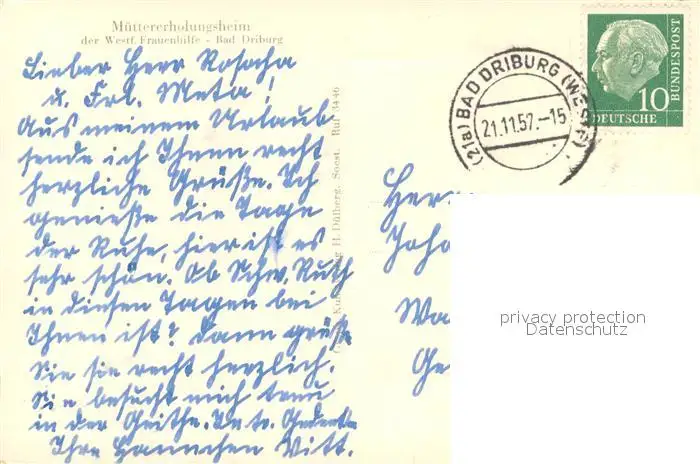 Müttererholungsheim
der Westf. Frauenhilfe - Bad Driburg
Lieber Herr Rosacha
u. Frl. Meta!
Aus meinem Urlaub
sende ich Ihnen recht
herzliche Grüße. Ich
genieße die Tage
der Ruhe, hier ist es
sehr schön. Ob Schw. Ruth
in diesen Tagen bei
Ihnen ist? Dann grüße
Sie sie recht herzlich.
Sie besucht mich
in der
Ihre Hannchen Vitt.
H. Dülberg, Soest. Ruf 3446
(21a) BAD DRIBURG (WESTF)
21.11.57.-15
10
DEUTSCHE
BUNDESPOST
Herr
Joha
Wa
Ge
privacy protection
Datenschutz